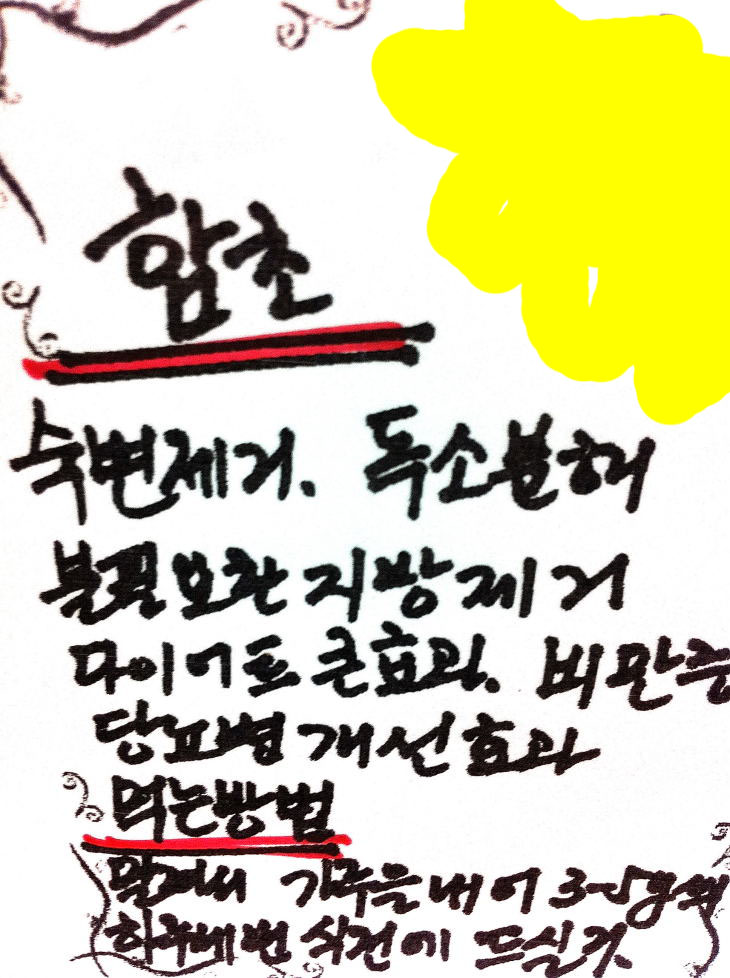 함초
숙변제거. 독소분해
불필요한 지방제거
다이어트 큰효과. 비만증
당뇨병 개선 효과
먹는방법
말려서 가루을 내어 3~5g씩
하루세번 식전에 드실것.